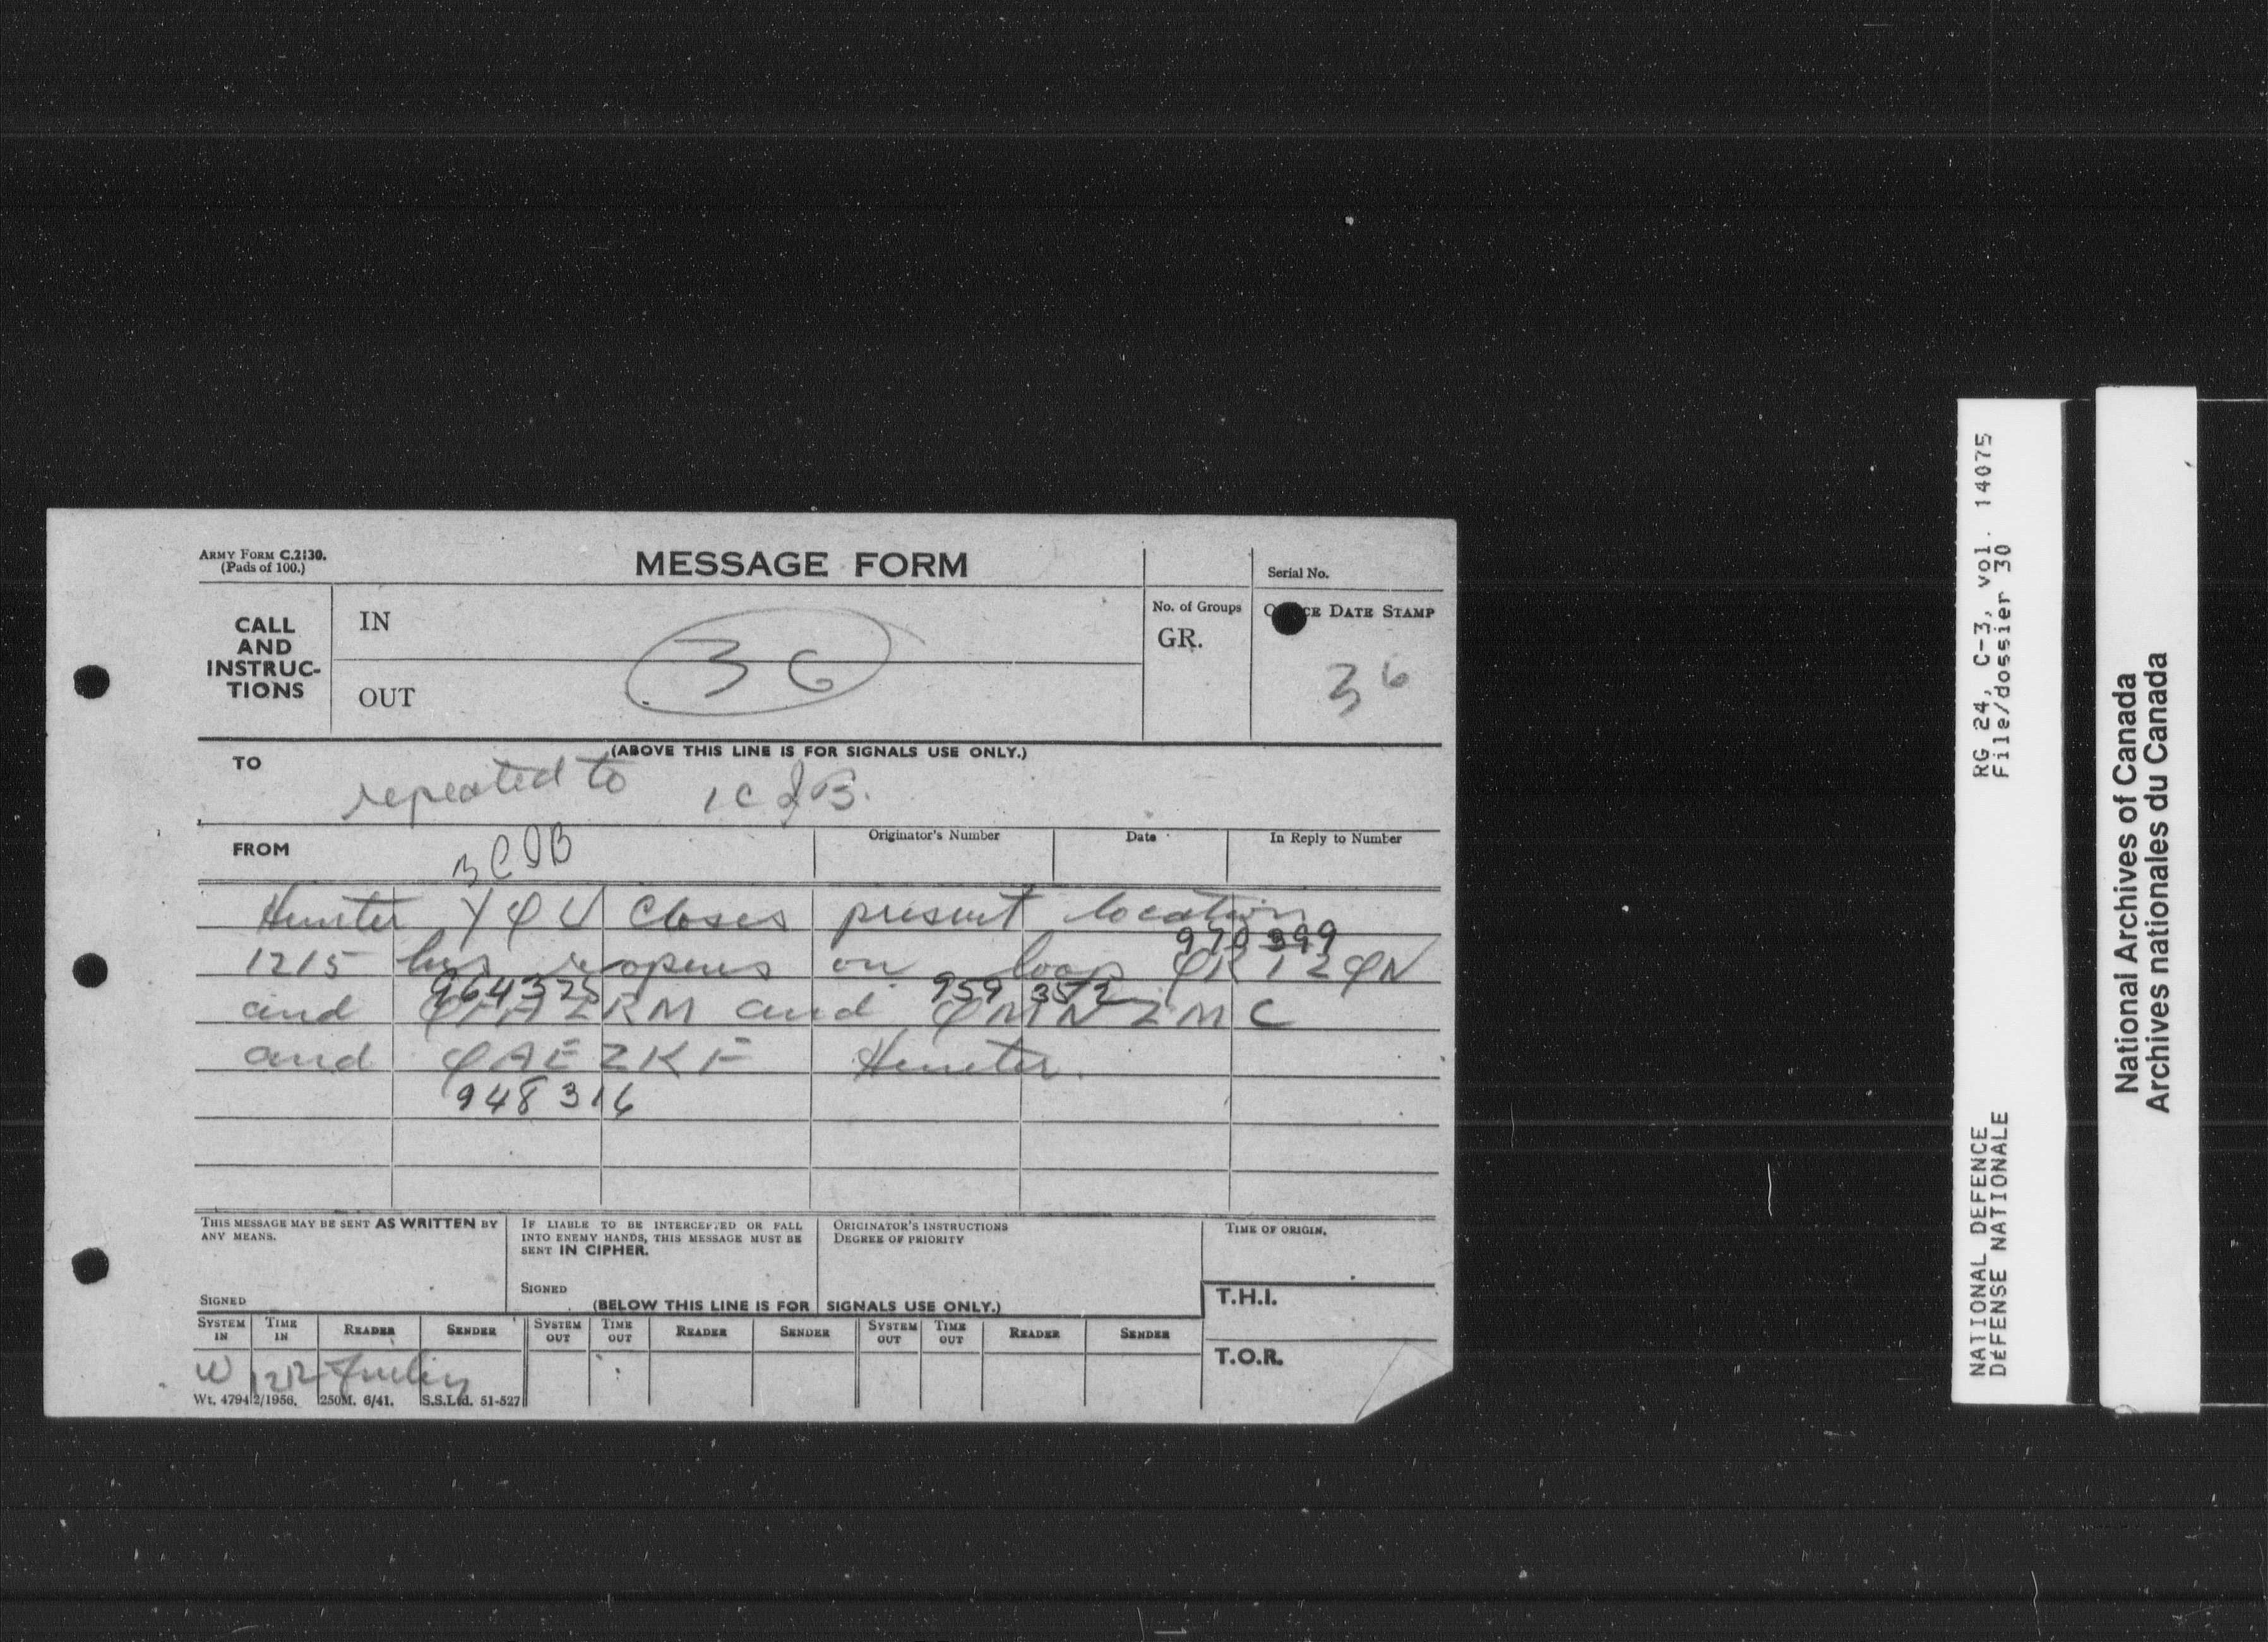 ARMY FORM C.2130.
(Pads of 100.)
MESSAGE FORM
Serial No.
CALL
AND
INSTRUC-
TIONS
IN
OUT
36
No. of Groups
GR.
OFFICE DATE STAMP
36
(ABOVE THIS LINE IS FOR SIGNALS USE ONLY.)
TO
repeated to 1 C I B.
FROM
3 C I B
Originator's Number
Date
In Reply to Number
Hunter YφU Closes present location
970 399
1215 hrs reopens on loop φR I Z φN
964 325 959 352
and ZRM and φMN ZMC
and φAE ZKF Hunter.
948 316
THIS MESSAGE MAY BE SENT AS WRITTEN BY
ANY MEANS.
SIGNED
IF LIABLE TO BE INTERCEPTED OR FALL
INTO ENEMY HANDS, THIS MESSAGE MUST BE
SENT IN CIPHER.
SIGNED
ORIGINATOR'S INSTRUCTIONS
DEGREE OF PRIORITY
TIME OF ORIGIN.
T.H.I.
T.O.R.
(BELOW THIS LINE IS FOR SIGNALS USE ONLY.)
SYSTEM IN TIME IN READER SENDER SYSTEM OUT TIME OUT READER SENDER SYSTEM OUT TIME OUT READER SENDER
W 1212
Wt. 47942/1956. 250M. 6/41. S.S.Ltd. 51-527
RG 24, C-3, vol. 14075
File/dossier 30
NATIONAL DEFENCE
DÉFENSE NATIONALE
National Archives of Canada
Archives nationales du Canada